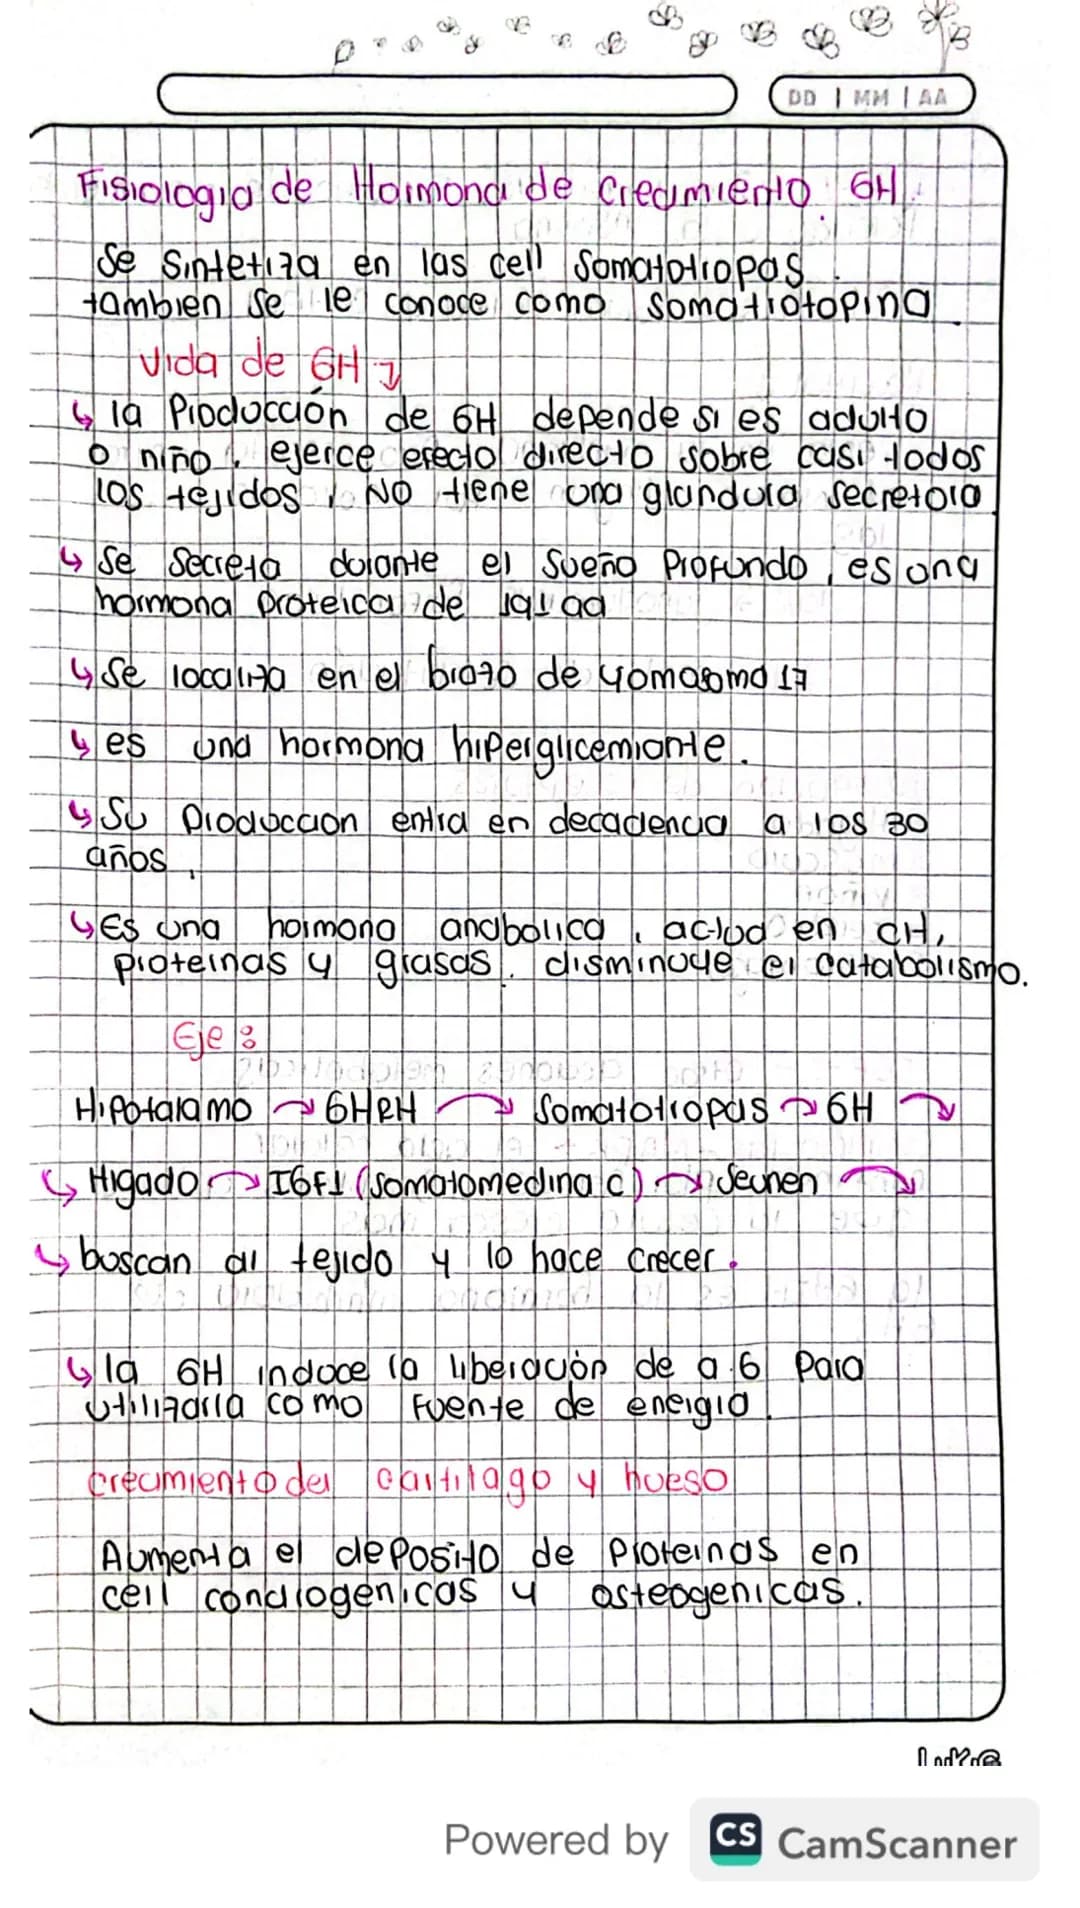 DD | MM | AA
Fisiologia de Hormona de Crecimiento. GH.
Se Sintetiza en las cell Somatotropas.
tambien se le conoce como Somatrotopina.
Vida de GH
la Producción de GH depende si es adulto
o niño, ejerce efecto directo sobre casi todos
los tejidos, NO tiene una glandula secretora.
Se Secreta durante el Sueño Profundo, es una
hormona proteica de 191 aa
Se localiza en el brazo de 17
es una hormona hiperglicemiante.
Su Produccion entra en decadencia a los 30
años.
Es una hormona anabolica, actua en CH,
proteinas y grasas. disminuye el Catabolismo.
Eje:
Hipotalamo GHRH Somatotropas GH
Higado IGF1 (somatomedina c) Seunen
buscan al tejido y lo hace crecer.
la GH induce la liberación de a.G Para
utilizarla como Fuente de energia.
crecimiento del cartilago y hueso
Aumenta el deposito de Proteinas en
cell condrogenicas y osteogenicas.
Powered by CS CamScanner